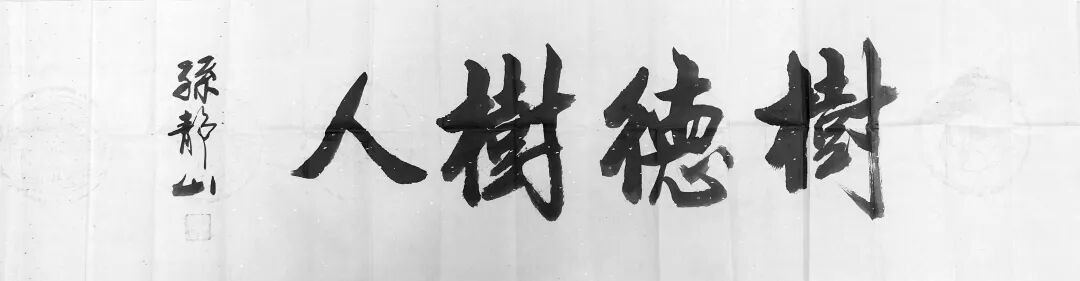 樹德樹人
孫靜山